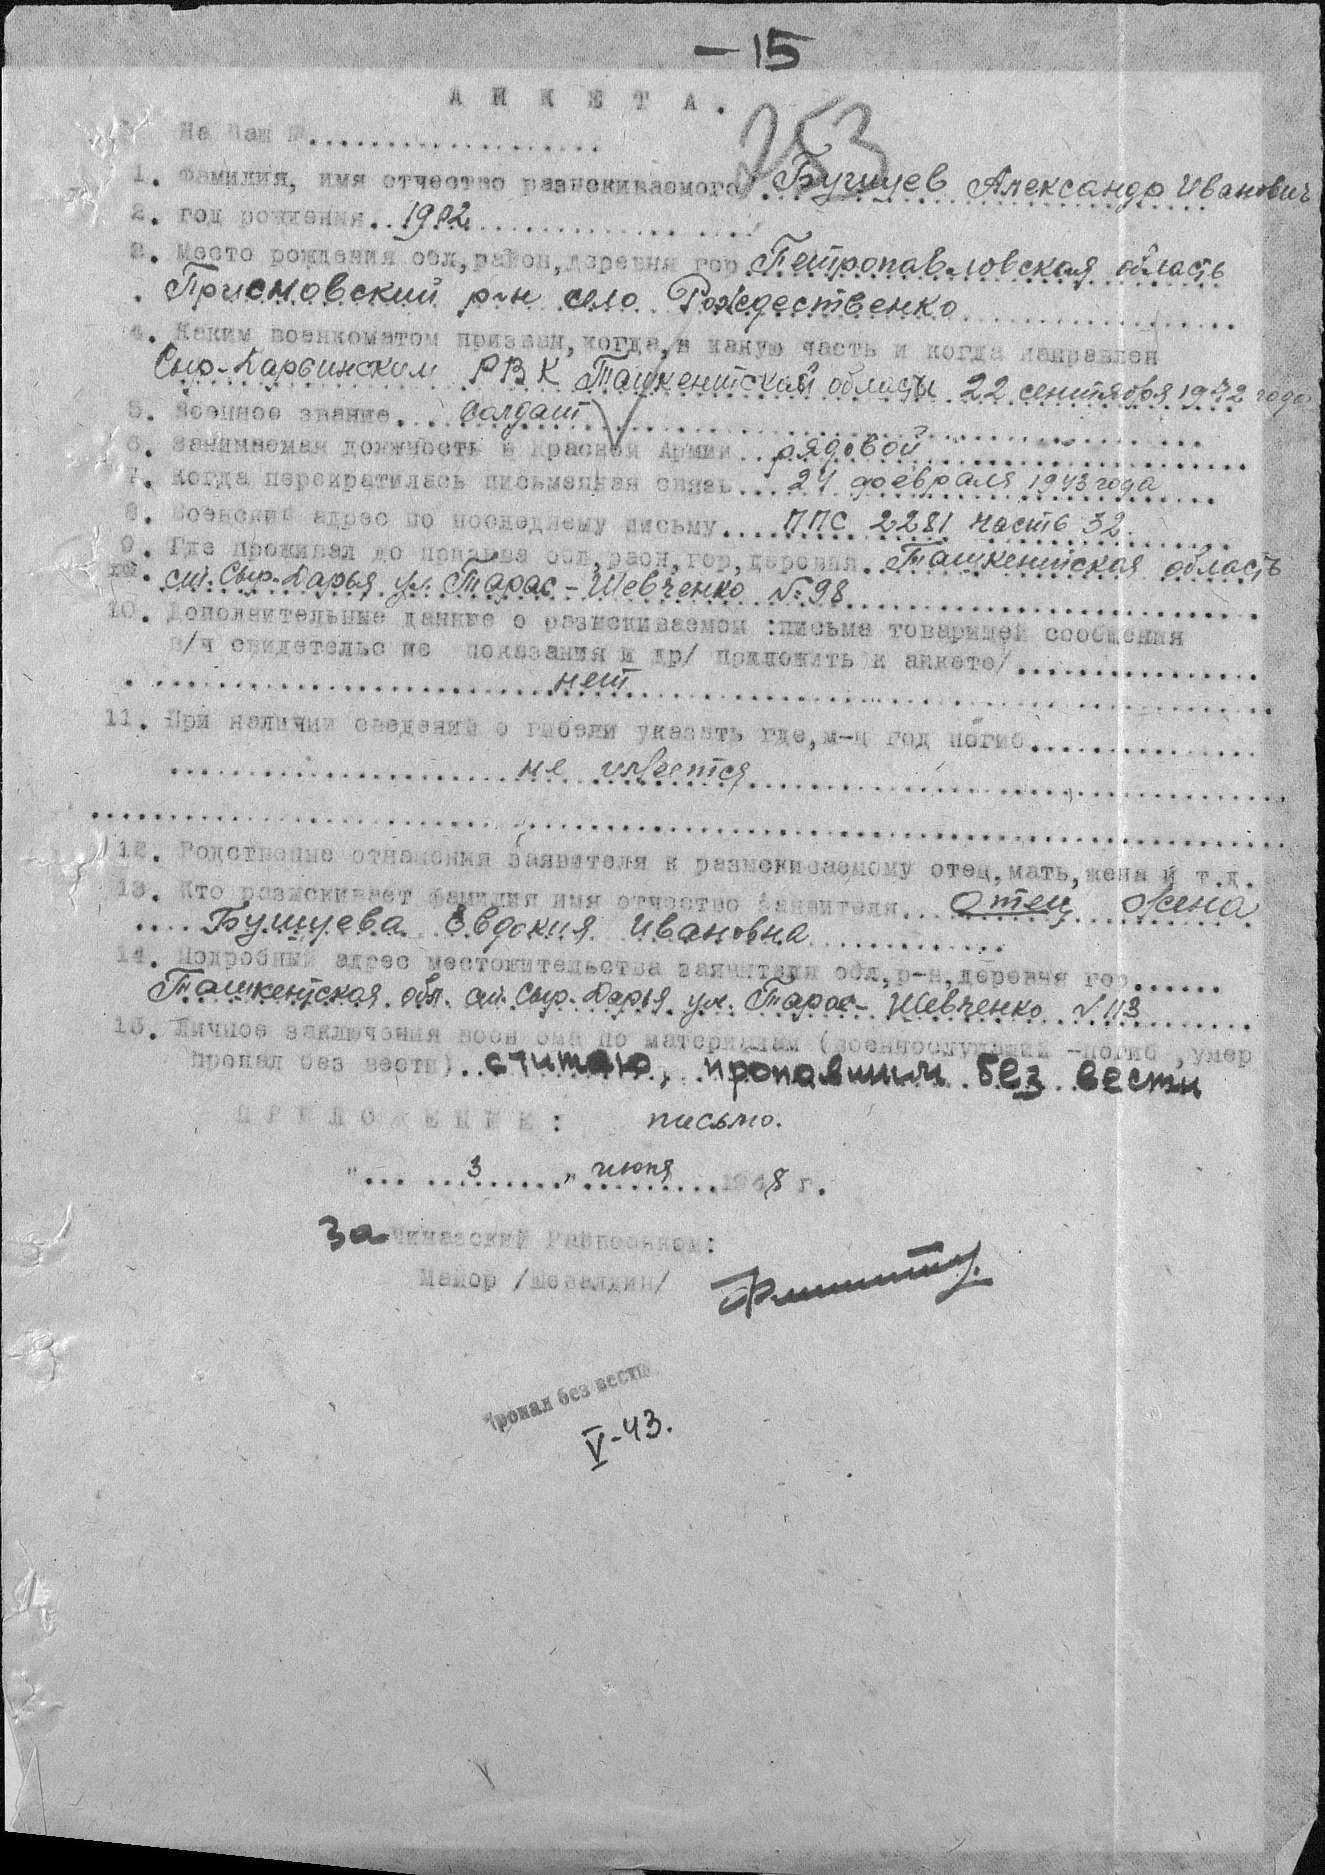 -15
А Н К Е Т А.
253
На Ваш №...................
1. Фамилия, имя отчество разискиваемого Бушуев Александр Иванович
2. год рождения. 1902
3. Место рождения обл, район, деревня гор. Петропавловская область
Присновский р-н село Рождественко
4. Каким военкоматом призван, когда, в какую часть и когда направлен
Сыр-Дарьинским РВК Ташкентской области 22 сентября 1942 года
5. Военное звание. солдат
6. Занимаемая должность в Красной Армии. рядовой
7. Когда перекратилась письменная связь. 24 февраля 1943 года
8. Воевский адрес по последнему письму. ППС 2281 часть 32.
9. Где проживал до призыва обл, раон, гор, деревня. Ташкентская область
ст. Сыр-Дарья ул. Тарас-Шевченко №98
10. Дополнительные данные о разискиваемом :письма товарищей сообщения
в/ч свидетельс ие показания и др/ приложить к анкете/
нет
11. При наличии сведений о гибели указать где, м-ц год погиб
не имеется
12. Родствение отнашения заявителя к разискиваемому отец, мать, жена и т.д.
13. Кто разыскивает фамилия имя отчество заявителя. Отец жена
Бушуева Евдокия Ивановна
14. Подробный адрес местожительства заявителя обл, р-н, деревня гор
Ташкентская обл. ст. Сыр-Дарья ул. Тарас-Шевченко №113
15. Личное заключения военкома по материалам (военнослужащий -погиб, умер
пропал без вести). считаю, пропавшим без вести
П Р И Л О Ж Е Н И Е : письмо.
"... 3 ..." июня 1948 г.
За Чиназский Райвоенком:
Майор /Шевалдин/
Пропал без вести
V-43.